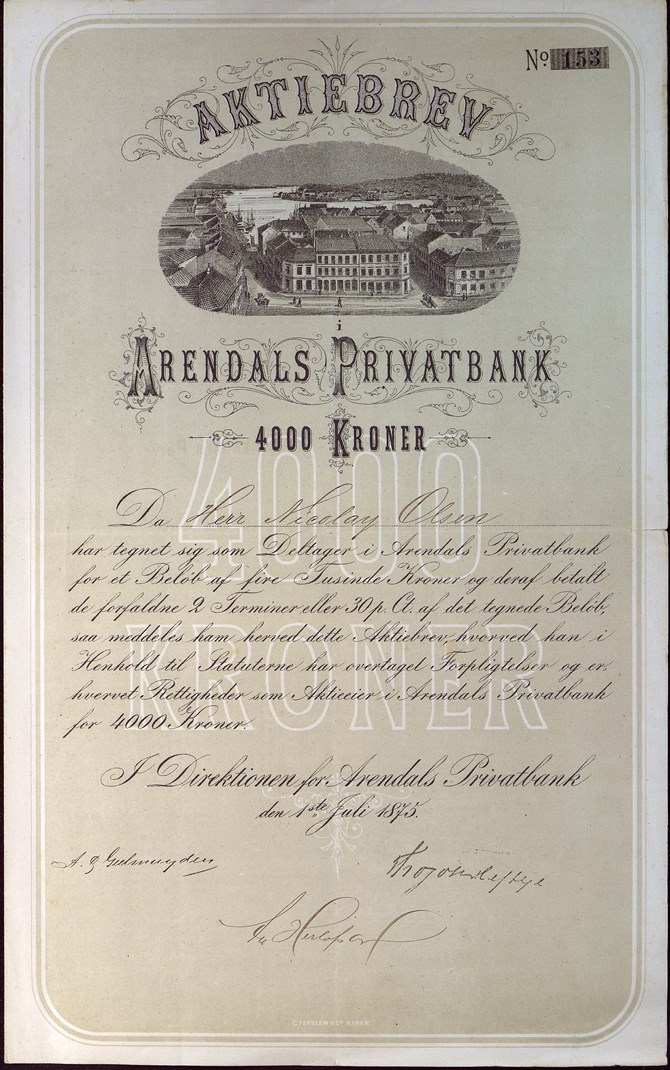 No 153
AKTIEBREV
i
ARENDALS PRIVATBANK
4000 KRONER
4000
KRONER
Da Herr Nicolay Olsen
har tegnet sig som Deltager i Arendals Privatbank
for et Beløb af fire Tusinde Kroner og deraf betalt
de forfaldne 2 Terminer eller 30 p. Ct. af det tegnede Beløb,
saa meddeles ham herved dette Aktiebrev, hvorved han i
Henhold til Statuterne har overtaget Forpligtelser og er-
hvervet Rettigheder som Aktieeier i Arendals Privatbank
for 4000 Kroner.
I Direktionen for Arendals Privatbank
den 1ste Juli 1875.
A. Geelmuyden